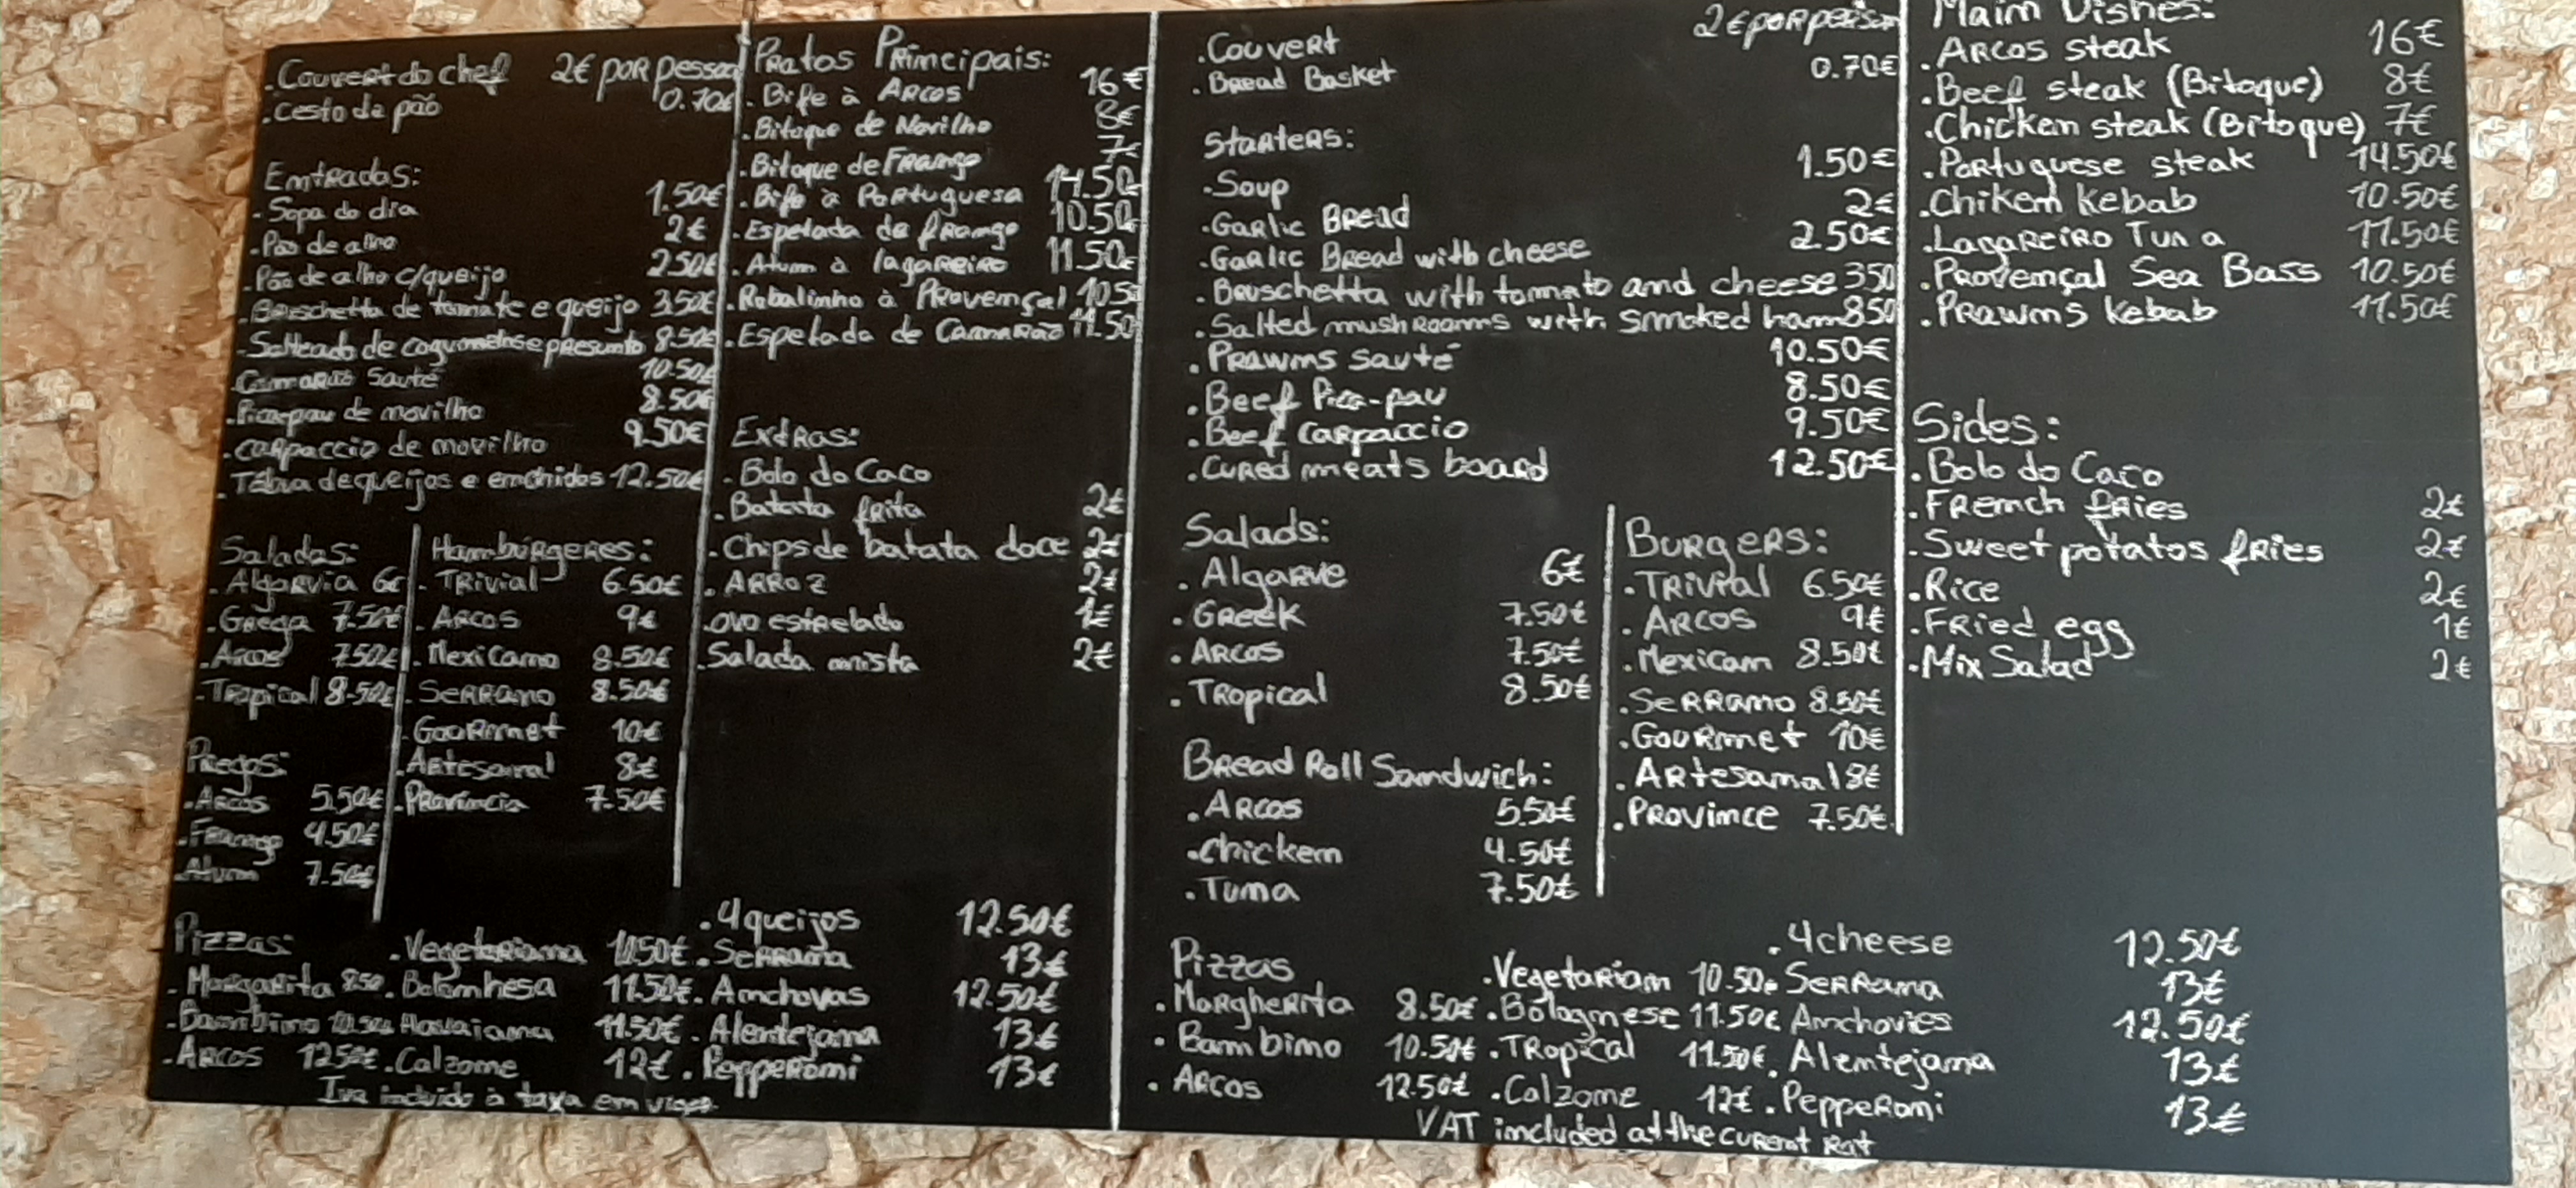 .Couvert do chef 2€ por pessoa
.Cesto de pão 0.70€
Entradas:
.Sopa do dia 1.50€
.Pão de alho 2€
.Pão de alho c/queijo 2.50€
.Bruschetta de tomate e queijo 3.50€
.Salteado de cogumelos e presunto 8.50€
.Camarão sauté 10.50€
.Pica-pau de novilho 8.50€
.Carpaccio de novilho 9.50€
.Tábua de queijos e enchidos 12.50€
Saladas:
.Algarvia 6€
.Grega 7.50€
.Arcos 7.50€
.Tropical 8.50€
Pregos:
.Arcos 5.50€
.Frango 4.50€
.Atum 7.50€
Hambúrgeres:
.Trivial 6.50€
.Arcos 9€
.Mexicano 8.50€
.Serrano 8.50€
.Gourmet 10€
.Artesanal 8€
.Província 7.50€
Pratos Principais:
.Bife à Arcos 16€
.Bitoque de Novilho 8€
.Bitoque de Frango 7€
.Bife à Portuguesa 14.50€
.Espetada de frango 10.50€
.Atum à lagareiro 11.50€
.Robalinho à Provençal 10.50
.Espetada de Camarão 11.50
Extras:
.Bolo do Caco
.Batata frita 2€
.Chips de batata doce 2€
.Arroz 2€
.ovo estrelado 1€
.Salada mista 2€
Pizzas:
.Margarita 8.50
.Bambino 10.50€
.Arcos 12.50€
.Vegetariana 11.50€
.Bolonhesa 11.50€
Havaiana 11.50€
.Calzone 12€
.4 queijos 12.50€
.Serrana 13€
.Anchovas 12.50€
.Alentejana 13€
.Pepperoni 13€
Iva incluido à taxa em vigor.
.Couvert 2€ por person
.Bread Basket 0.70€
Starters:
.Soup 1.50€
.Garlic Bread 2€
.Garlic Bread with cheese 2.50€
.Bruschetta with tomato and cheese 3.50
.Salted mushrooms with smoked ham 8.50
.Prawns sauté 10.50€
.Beef Pica-pau 8.50€
.Beef carpaccio 9.50€
.Cured meats board 12.50€
Salads:
.Algarve 6€
.Greek 7.50€
.Arcos 7.50€
.Tropical 8.50€
Bread Roll Sandwich:
.Arcos 5.50€
.Chicken 4.50€
.Tuna 7.50€
Burgers:
.Trivial 6.50€
.Arcos 9€
.Mexican 8.50€
.Serrano 8.50€
.Gourmet 10€
.Artesanal 8€
.Province 7.50€
Main Dishes:
.Arcos steak 16€
.Beef steak (Bitoque) 8€
.Chicken steak (Bitoque) 7€
.Portuguese steak 14.50€
.Chiken kebab 10.50€
.Lagareiro Tuna 11.50€
.Provençal Sea Bass 10.50€
.Prawns kebab 11.50€
Sides:
.Bolo do Caco
.French fries 2€
.Sweet potatos fries 2€
.Rice 2€
.Fried egg 1€
.Mix Salad 2€
Pizzas
.Margherita 8.50€
.Bambino 10.50€
.Arcos 12.50€
.Vegetarian 10.50€
.Bolognese 11.50€
.Tropical 11.50€
.Calzone 12€
.4cheese 12.50€
Serrana 13€
Anchovies 12.50€
.Alentejana 13€
.Pepperoni 13€
VAT included at the curent rat